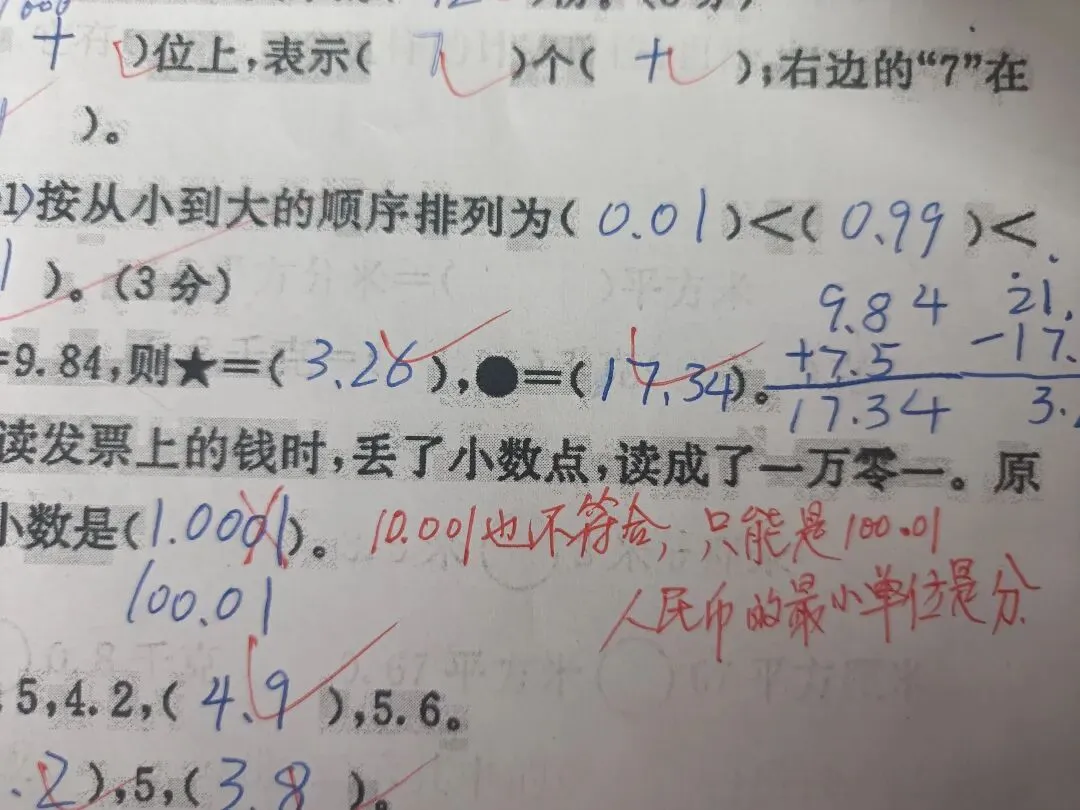 十 )位上,表示( 7 )个( 十 );右边的“7”在
)。
1)按从小到大的顺序排列为( 0.01 )<( 0.99 )<
1 )。(3分)
9.84 21.
+7.5 -17.
17.34 3.
=9.84,则★=( 3.26 ),●=( 17.34 )。
读发票上的钱时,丢了小数点,读成了一万零一。原
小数是( 1.0001 )。 10.001也不符合,只能是100.01
100.01 人民币的最小单位是分
5,4.2,( 4.9 ),5.6。
.2 ),5,( 3.8 )。